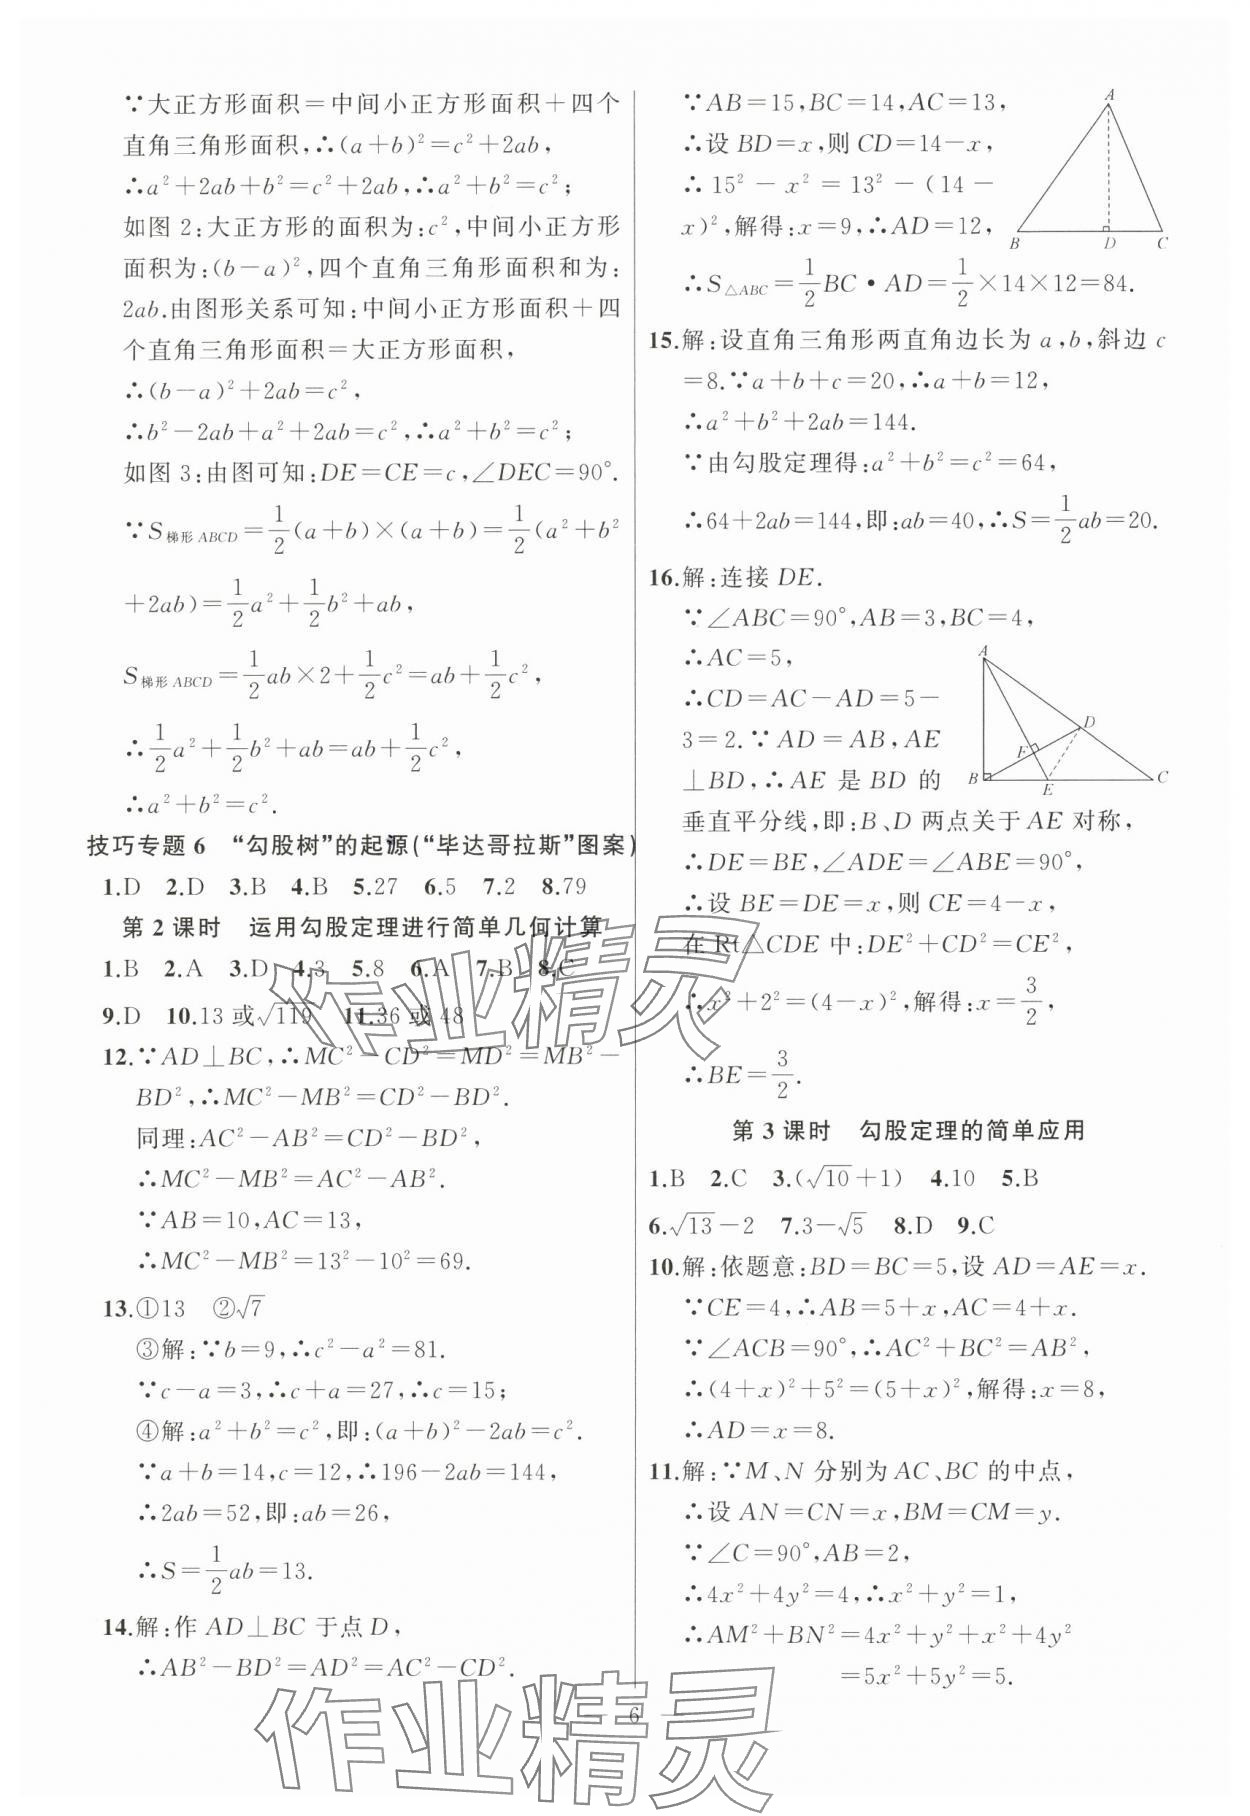 ∵大正方形面积＝中间小正方形面积＋四个
直角三角形面积,∴(a＋b)²＝c²＋2ab,
∴a²＋2ab＋b²＝c²＋2ab,∴a²＋b²＝c²;
如图 2:大正方形的面积为:c²,中间小正方形
面积为:(b－a)²,四个直角三角形面积和为:
2ab.由图形关系可知:中间小正方形面积＋四
个直角三角形面积＝大正方形面积,
∴(b－a)²＋2ab＝c²,
∴b²－2ab＋a²＋2ab＝c²,∴a²＋b²＝c²;
如图 3:由图可知:DE＝CE＝c,∠DEC＝90°.
∵S梯形ABCD＝1/2(a＋b)×(a＋b)＝1/2(a²＋b²
＋2ab)＝1/2a²＋1/2b²＋ab,
S梯形ABCD＝1/2ab×2＋1/2c²＝ab＋1/2c²,
∴1/2a²＋1/2b²＋ab＝ab＋1/2c²,
∴a²＋b²＝c².
技巧专题 6　“勾股树”的起源(“毕达哥拉斯”图案)
1.D　2.D　3.B　4.B　5.27　6.5　7.2　8.79
第 2 课时　运用勾股定理进行简单几何计算
1.B　2.A　3.D　4.3　5.8　6.A　7.B　8.C
9.D　10.13 或√119　11.36 或 48
12.∵AD⊥BC,∴MC²－CD²＝MD²＝MB²－
BD²,∴MC²－MB²＝CD²－BD².
同理:AC²－AB²＝CD²－BD²,
∴MC²－MB²＝AC²－AB².
∵AB＝10,AC＝13,
∴MC²－MB²＝13²－10²＝69.
13.①13　②√7
③解:∵b＝9,∴c²－a²＝81.
∵c－a＝3,∴c＋a＝27,∴c＝15;
④解:a²＋b²＝c²,即:(a＋b)²－2ab＝c².
∵a＋b＝14,c＝12,∴196－2ab＝144,
∴2ab＝52,即:ab＝26,
∴S＝1/2ab＝13.
14.解:作 AD⊥BC 于点 D,
∴AB²－BD²＝AD²＝AC²－CD².
∵AB＝15,BC＝14,AC＝13,
∴设 BD＝x,则 CD＝14－x,
∴15²－x²＝13²－(14－
x)²,解得:x＝9,∴AD＝12,
A
B D C
∴S△ABC＝1/2BC·AD＝1/2×14×12＝84.
15.解:设直角三角形两直角边长为 a,b,斜边 c
＝8.∵a＋b＋c＝20,∴a＋b＝12,
∴a²＋b²＋2ab＝144.
∵由勾股定理得:a²＋b²＝c²＝64,
∴64＋2ab＝144,即:ab＝40,∴S＝1/2ab＝20.
16.解:连接 DE.
∵∠ABC＝90°,AB＝3,BC＝4,
∴AC＝5,
∴CD＝AC－AD＝5－
3＝2.∵AD＝AB,AE
⊥BD,∴AE 是 BD 的
A
D
F
B E C
垂直平分线,即:B、D 两点关于 AE 对称,
∴DE＝BE,∠ADE＝∠ABE＝90°,
∴设 BE＝DE＝x,则 CE＝4－x,
在 Rt△CDE 中:DE²＋CD²＝CE²,
∴x²＋2²＝(4－x)²,解得:x＝3/2,
∴BE＝3/2.
第 3 课时　勾股定理的简单应用
1.B　2.C　3.(√10＋1)　4.10　5.B
6.√13－2　7.3－√5　8.D　9.C
10.解:依题意:BD＝BC＝5,设 AD＝AE＝x.
∵CE＝4,∴AB＝5＋x,AC＝4＋x.
∵∠ACB＝90°,∴AC²＋BC²＝AB²,
∴(4＋x)²＋5²＝(5＋x)²,解得:x＝8,
∴AD＝x＝8.
11.解:∵M、N 分别为 AC、BC 的中点,
∴设 AN＝CN＝x,BM＝CM＝y.
∵∠C＝90°,AB＝2,
∴4x²＋4y²＝4,∴x²＋y²＝1,
∴AM²＋BN²＝4x²＋y²＋x²＋4y²
＝5x²＋5y²＝5.
6
作业精灵
作业精灵